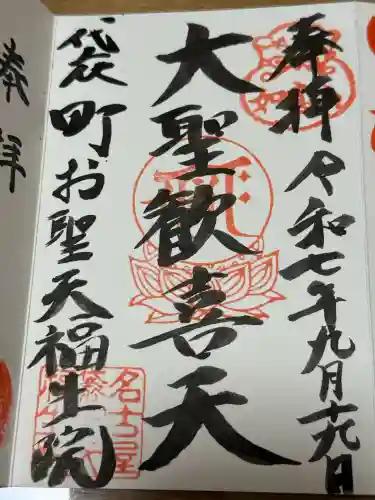 奉拝
令和七年九月十九日
大聖歓喜天
袋町お聖天福生院
名古屋
奉拝